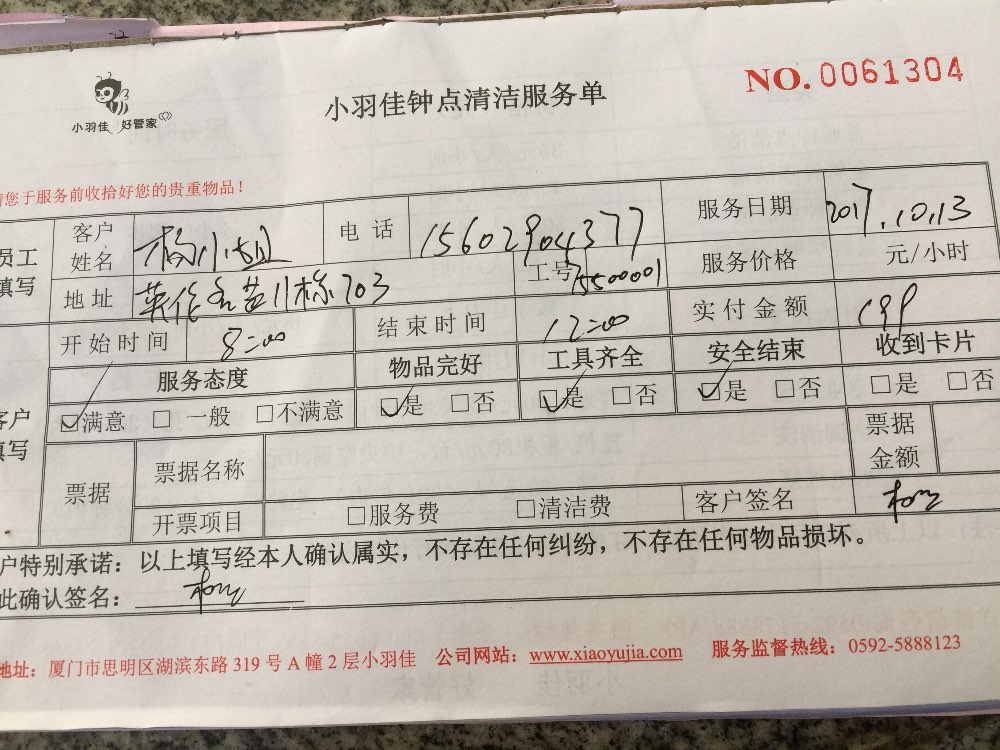 小羽佳 好管家
小羽佳钟点清洁服务单
NO.0061304
请您于服务前收拾好您的贵重物品！
员工填写
客户姓名 杨小姐 电话 15602904377 服务日期 2017.10.13
地址 703 工号 服务价格 元/小时
开始时间 8:00 结束时间 12:00 实付金额 199
服务态度 物品完好 工具齐全 安全结束 收到卡片
客户填写
☑满意 □一般 □不满意 ☑是 □否 ☑是 □否 ☑是 □否 □是 □否
票据 票据名称 票据金额
开票项目 □服务费 □清洁费 客户签名
户特别承诺：以上填写经本人确认属实，不存在任何纠纷，不存在任何物品损坏。
此确认签名：
地址：厦门市思明区湖滨东路319号A幢2层小羽佳 公司网站：www.xiaoyujia.com 服务监督热线：0592-5888123